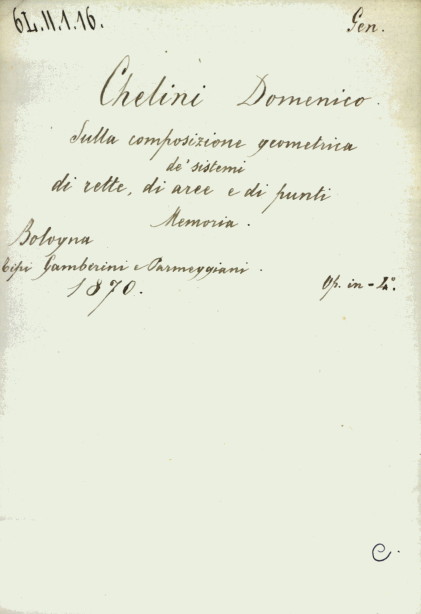 6L.II.1.16. Gen.
Chelini Domenico.
Sulla composizione geometrica
de' sistemi
di rette, di aree e di punti
Memoria.
Bologna
Tipi Gamberini e Parmeggiani.
1870. Op. in-4°.
C.